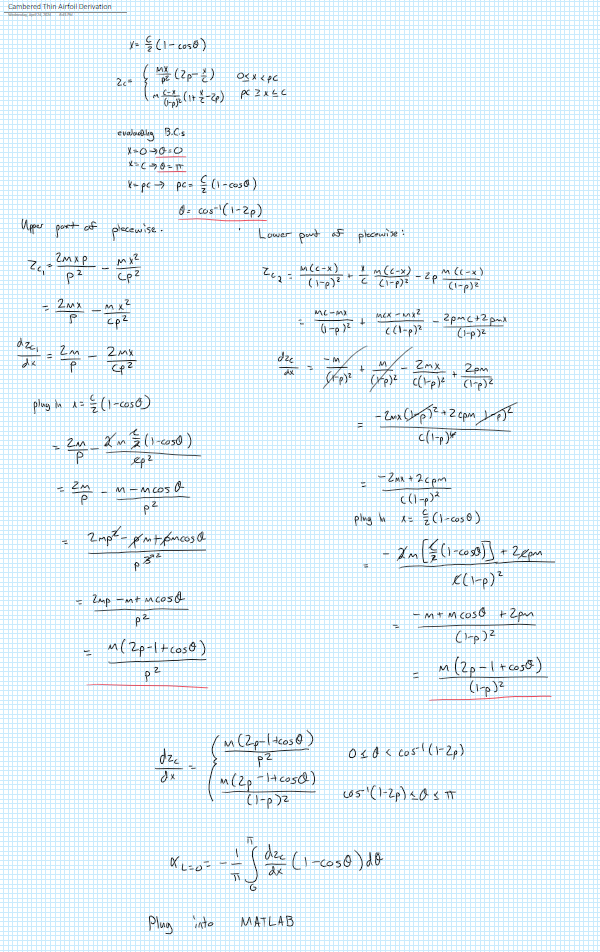 Cambered Thin Airfoil Derivation
x = c/2 (1 - cosθ)
Zc = { mx/p² (2p - x/c)   0 ≤ x < pc
m (c-x)/(1-p)² (1 + x/c - 2p)   pc ≥ x ≤ c
evaluating B.C.s
x=0 → θ=0
x=c → θ=π
x=pc → pc = c/2 (1-cosθ)
θ = cos⁻¹(1-2p)
Upper part of piecewise:
Zc₁ = 2mxp/p² - mx²/cp²
= 2mx/p - mx²/cp²
dzc₁/dx = 2m/p - 2mx/cp²
plug in x = c/2 (1-cosθ)
= 2m/p - 2m c/2 (1-cosθ)/cp²
= 2m/p - m-mcosθ/p²
= 2mp² - pm + pmcosθ/p³
= 2mp - m + mcosθ/p²
= m(2p-1+cosθ)/p²
Lower part of piecewise:
Zc₂ = m(c-x)/(1-p)² + x/c m(c-x)/(1-p)² - 2p m(c-x)/(1-p)²
= mc-mx/(1-p)² + mcx-mx²/c(1-p)² - 2pmc+2pmx/(1-p)²
dzc/dx = -m/(1-p)² + m/(1-p)² - 2mx/c(1-p)² + 2pm/(1-p)²
= -2mx(1-p)² + 2cpm(1-p)²/c(1-p)⁴
= -2mx+2cpm/c(1-p)²
plug in x = c/2 (1-cosθ)
= -2m[c/2 (1-cosθ)] + 2cpm/c(1-p)²
= -m+mcosθ+2pm/(1-p)²
= m(2p-1+cosθ)/(1-p)²
dzc/dx = { m(2p-1+cosθ)/p²   0 ≤ θ < cos⁻¹(1-2p)
m(2p-1+cosθ)/(1-p)²   cos⁻¹(1-2p) ≤ θ ≤ π
α L=0 = -1/π ∫₀^π dzc/dx (1-cosθ)dθ
Plug into MATLAB